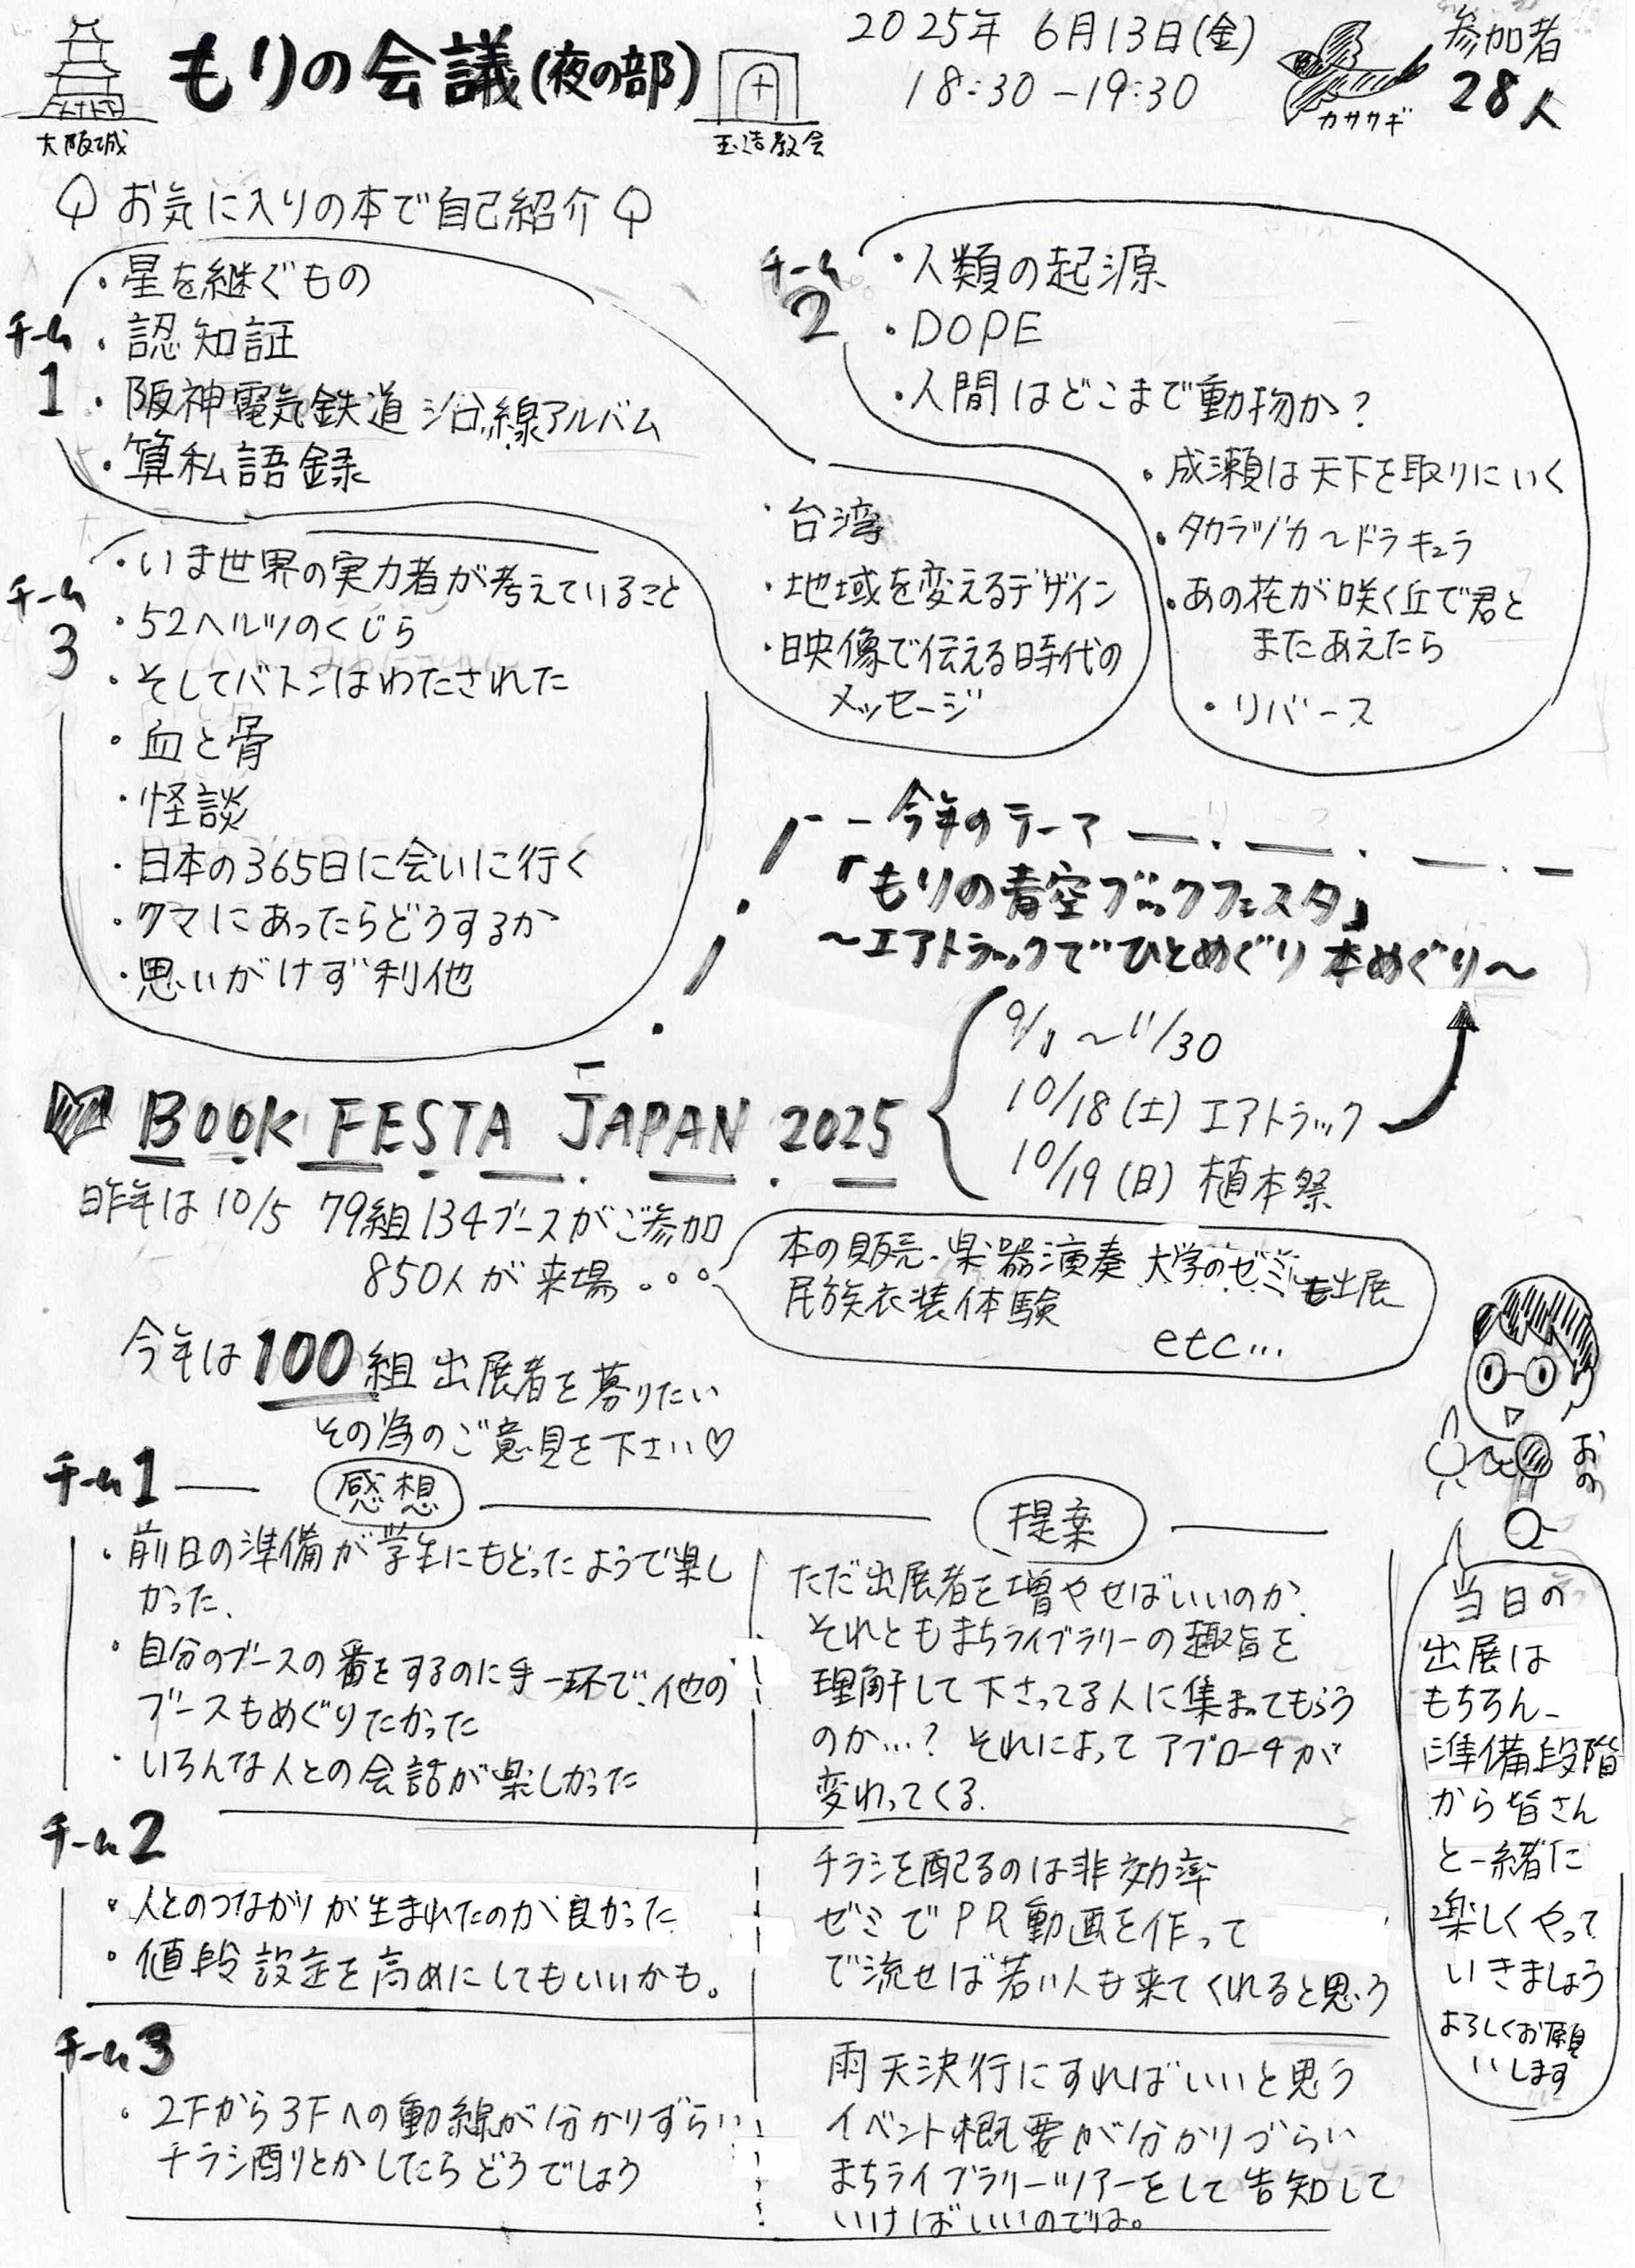 もりの会議(夜の部)
2025年 6月13日(金)
18:30-19:30
参加者
28人
大阪城
玉造教会
カササギ
お気に入りの本で自己紹介
チーム
1
・星を継ぐもの
・認知証
・阪神電気鉄道 沿線アルバム
・算私語録
・台湾
・地域を変えるデザイン
・映像で伝える時代の
メッセージ
チーム
2
・人類の起源
・DOPE
・人間はどこまで動物か?
・成瀬は天下を取りにいく
・タカラヅカ～ドラキュラ
・あの花が咲く丘で君と
またあえたら
・リバース
チーム
3
・いま世界の実力者が考えていること
・52ヘルツのくじら
・そしてバトンはわたされた
・血と骨
・怪談
・日本の365日に会いに行く
・クマにあったらどうするか
・思いがけず利他
今年のテーマ
「もりの青空ブックフェスタ」
～エアトラックでひとめぐり 本めぐり～
BOOK FESTA JAPAN 2025
9/1～11/30
10/18(土) エアトラック
10/19(日) 植本祭
昨年は10/5 79組134ブースがご参加
850人が来場...
本の販売、楽器演奏 大学のゼミも出展
民族衣装体験
etc...
今年は100組 出展者を募りたい
その為のご意見を下さい♡
おの
当日の
出展は
もちろん、
準備段階
から皆さん
と一緒に
楽しくやって
いきましょう
よろしくお願
いします
チーム1
感想
提案
・前日の準備が学生にもどったようで楽し
かった、
・自分のブースの番をするのに手一杯で、他の
ブースもめぐりたかった
・いろんな人との会話が楽しかった
ただ出展者を増やせばいいのか、
それともまちライブラリーの趣旨を
理解して下さってる人に集まってもらう
のか...? それによってアプローチが
変わってくる.
チーム2
・人とのつながりが生まれたのが良かった
・値段設定を高めにしてもいいかも。
チラシを配るのは非効率
ゼミでPR動画を作って
で流せば若い人も来てくれると思う
チーム3
・2Fから3Fへの動線が分かりずらい
チラシ配りとかしたらどうでしょう
雨天決行にすればいいと思う
イベント概要が分かりづらい
まちライブラリーツアーをして告知して
いけばいいのでは。